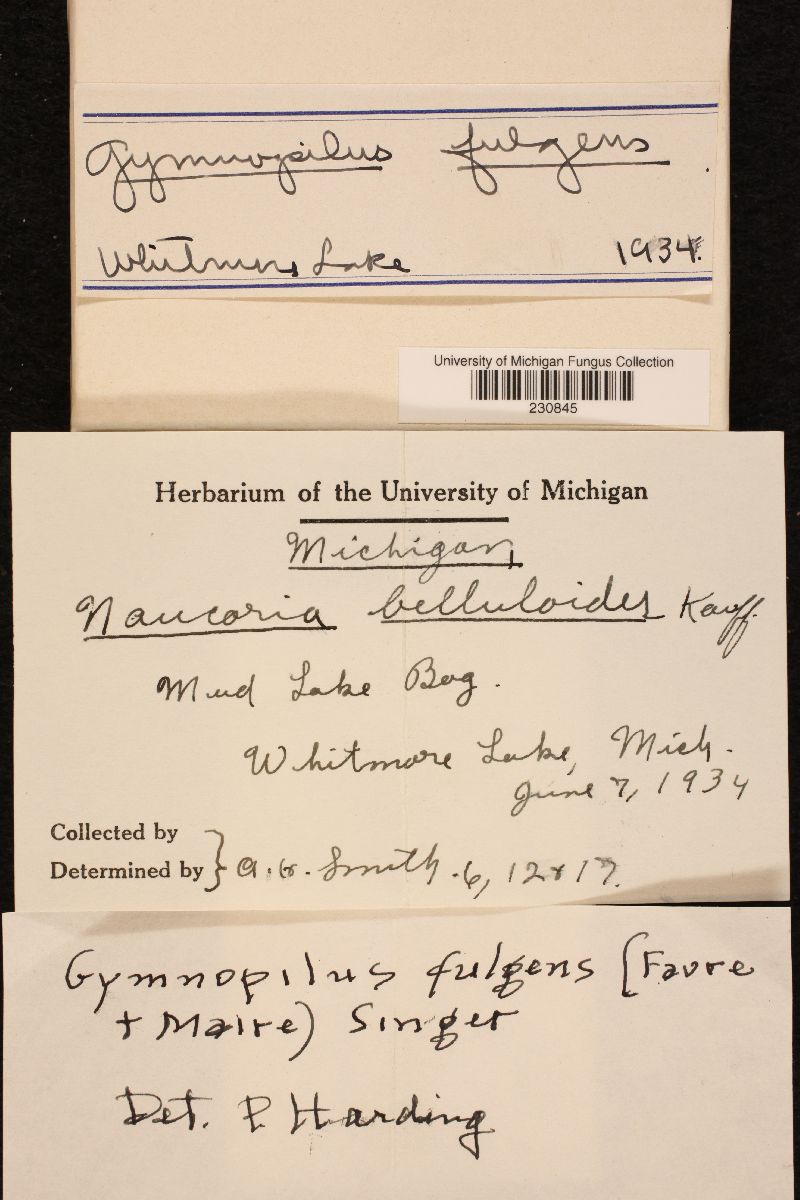 Gymnopilus fulgens
Whitmore Lake 1934.
University of Michigan Fungus Collection
230845
Herbarium of the University of Michigan
Michigan
Naucoria belluloides Kauff.
Mud Lake Bog.
Whitmore Lake, Mich.
June 7, 1934
Collected by
Determined by } A. H. Smith. 6, 12 & 17.
Gymnopilus fulgens (Favre
+ Maire) Singer
Det. P. Harding